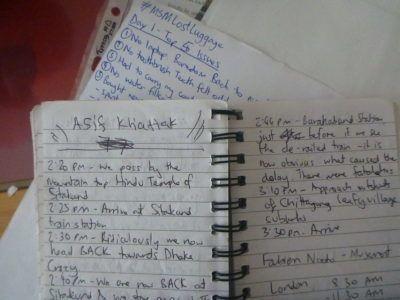 #MSMLostLuggage
Day 1 - Top 5 Issues
① No laptop Barendam Back to
② No toothbrush Teeth felt odd
③ Had to carry my coat
④ No water filter
⑤ Bought new
Asif Khattak
2:20 PM - We pass by the
Mountain top Hindu Temple of
Sitakund
2:25 PM - Arrive at Sitakund
train station
2:30 PM - Ridiculously we now
head BACK towards Dhaka
Crazy
2:40 PM - We are now BACK at
2:44 PM - Barabakund Station
just before it we see
the de-railed train - it is
now obvious what caused the
delay. There were fatalities
3:10 PM - Approach suburbs
of Chittagong leafy village
suburbs
3:30 PM - Arrive
Fabien
London 8:30 AM
11:30 AM